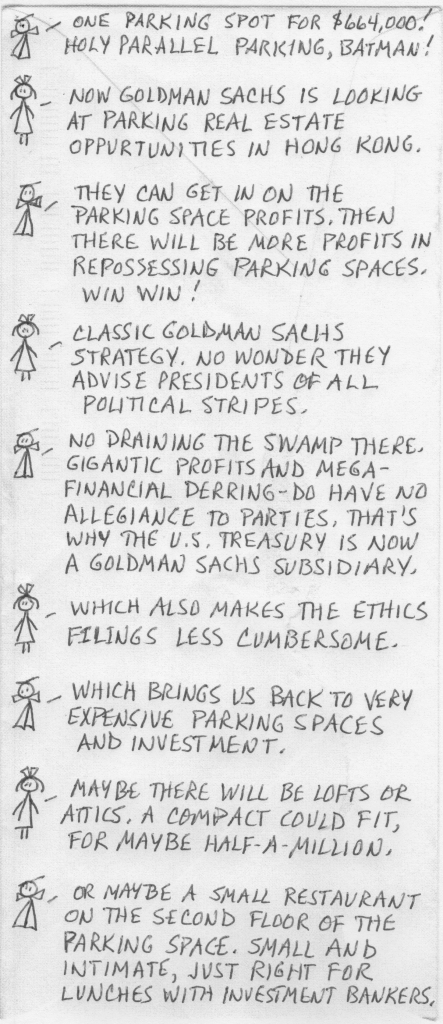 ONE PARKING SPOT FOR $664,000!
HOLY PARALLEL PARKING, BATMAN!
NOW GOLDMAN SACHS IS LOOKING
AT PARKING REAL ESTATE
OPPURTUNITIES IN HONG KONG.
THEY CAN GET IN ON THE
PARKING SPACE PROFITS. THEN
THERE WILL BE MORE PROFITS IN
REPOSSESSING PARKING SPACES.
WIN WIN!
CLASSIC GOLDMAN SACHS
STRATEGY. NO WONDER THEY
ADVISE PRESIDENTS OF ALL
POLITICAL STRIPES.
NO DRAINING THE SWAMP THERE.
GIGANTIC PROFITS AND MEGA-
FINANCIAL DERRING-DO HAVE NO
ALLEGIANCE TO PARTIES. THAT'S
WHY THE U.S. TREASURY IS NOW
A GOLDMAN SACHS SUBSIDIARY.
WHICH ALSO MAKES THE ETHICS
FILINGS LESS CUMBERSOME.
WHICH BRINGS US BACK TO VERY
EXPENSIVE PARKING SPACES
AND INVESTMENT.
MAYBE THERE WILL BE LOFTS OR
ATTICS. A COMPACT COULD FIT,
FOR MAYBE HALF-A-MILLION.
OR MAYBE A SMALL RESTAURANT
ON THE SECOND FLOOR OF THE
PARKING SPACE. SMALL AND
INTIMATE, JUST RIGHT FOR
LUNCHES WITH INVESTMENT BANKERS.